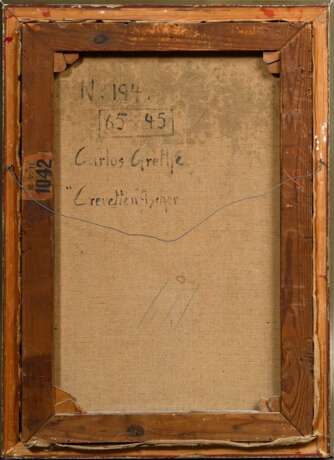 N. 194.
65 45
Carlos Grethe
"Crevetten
1042